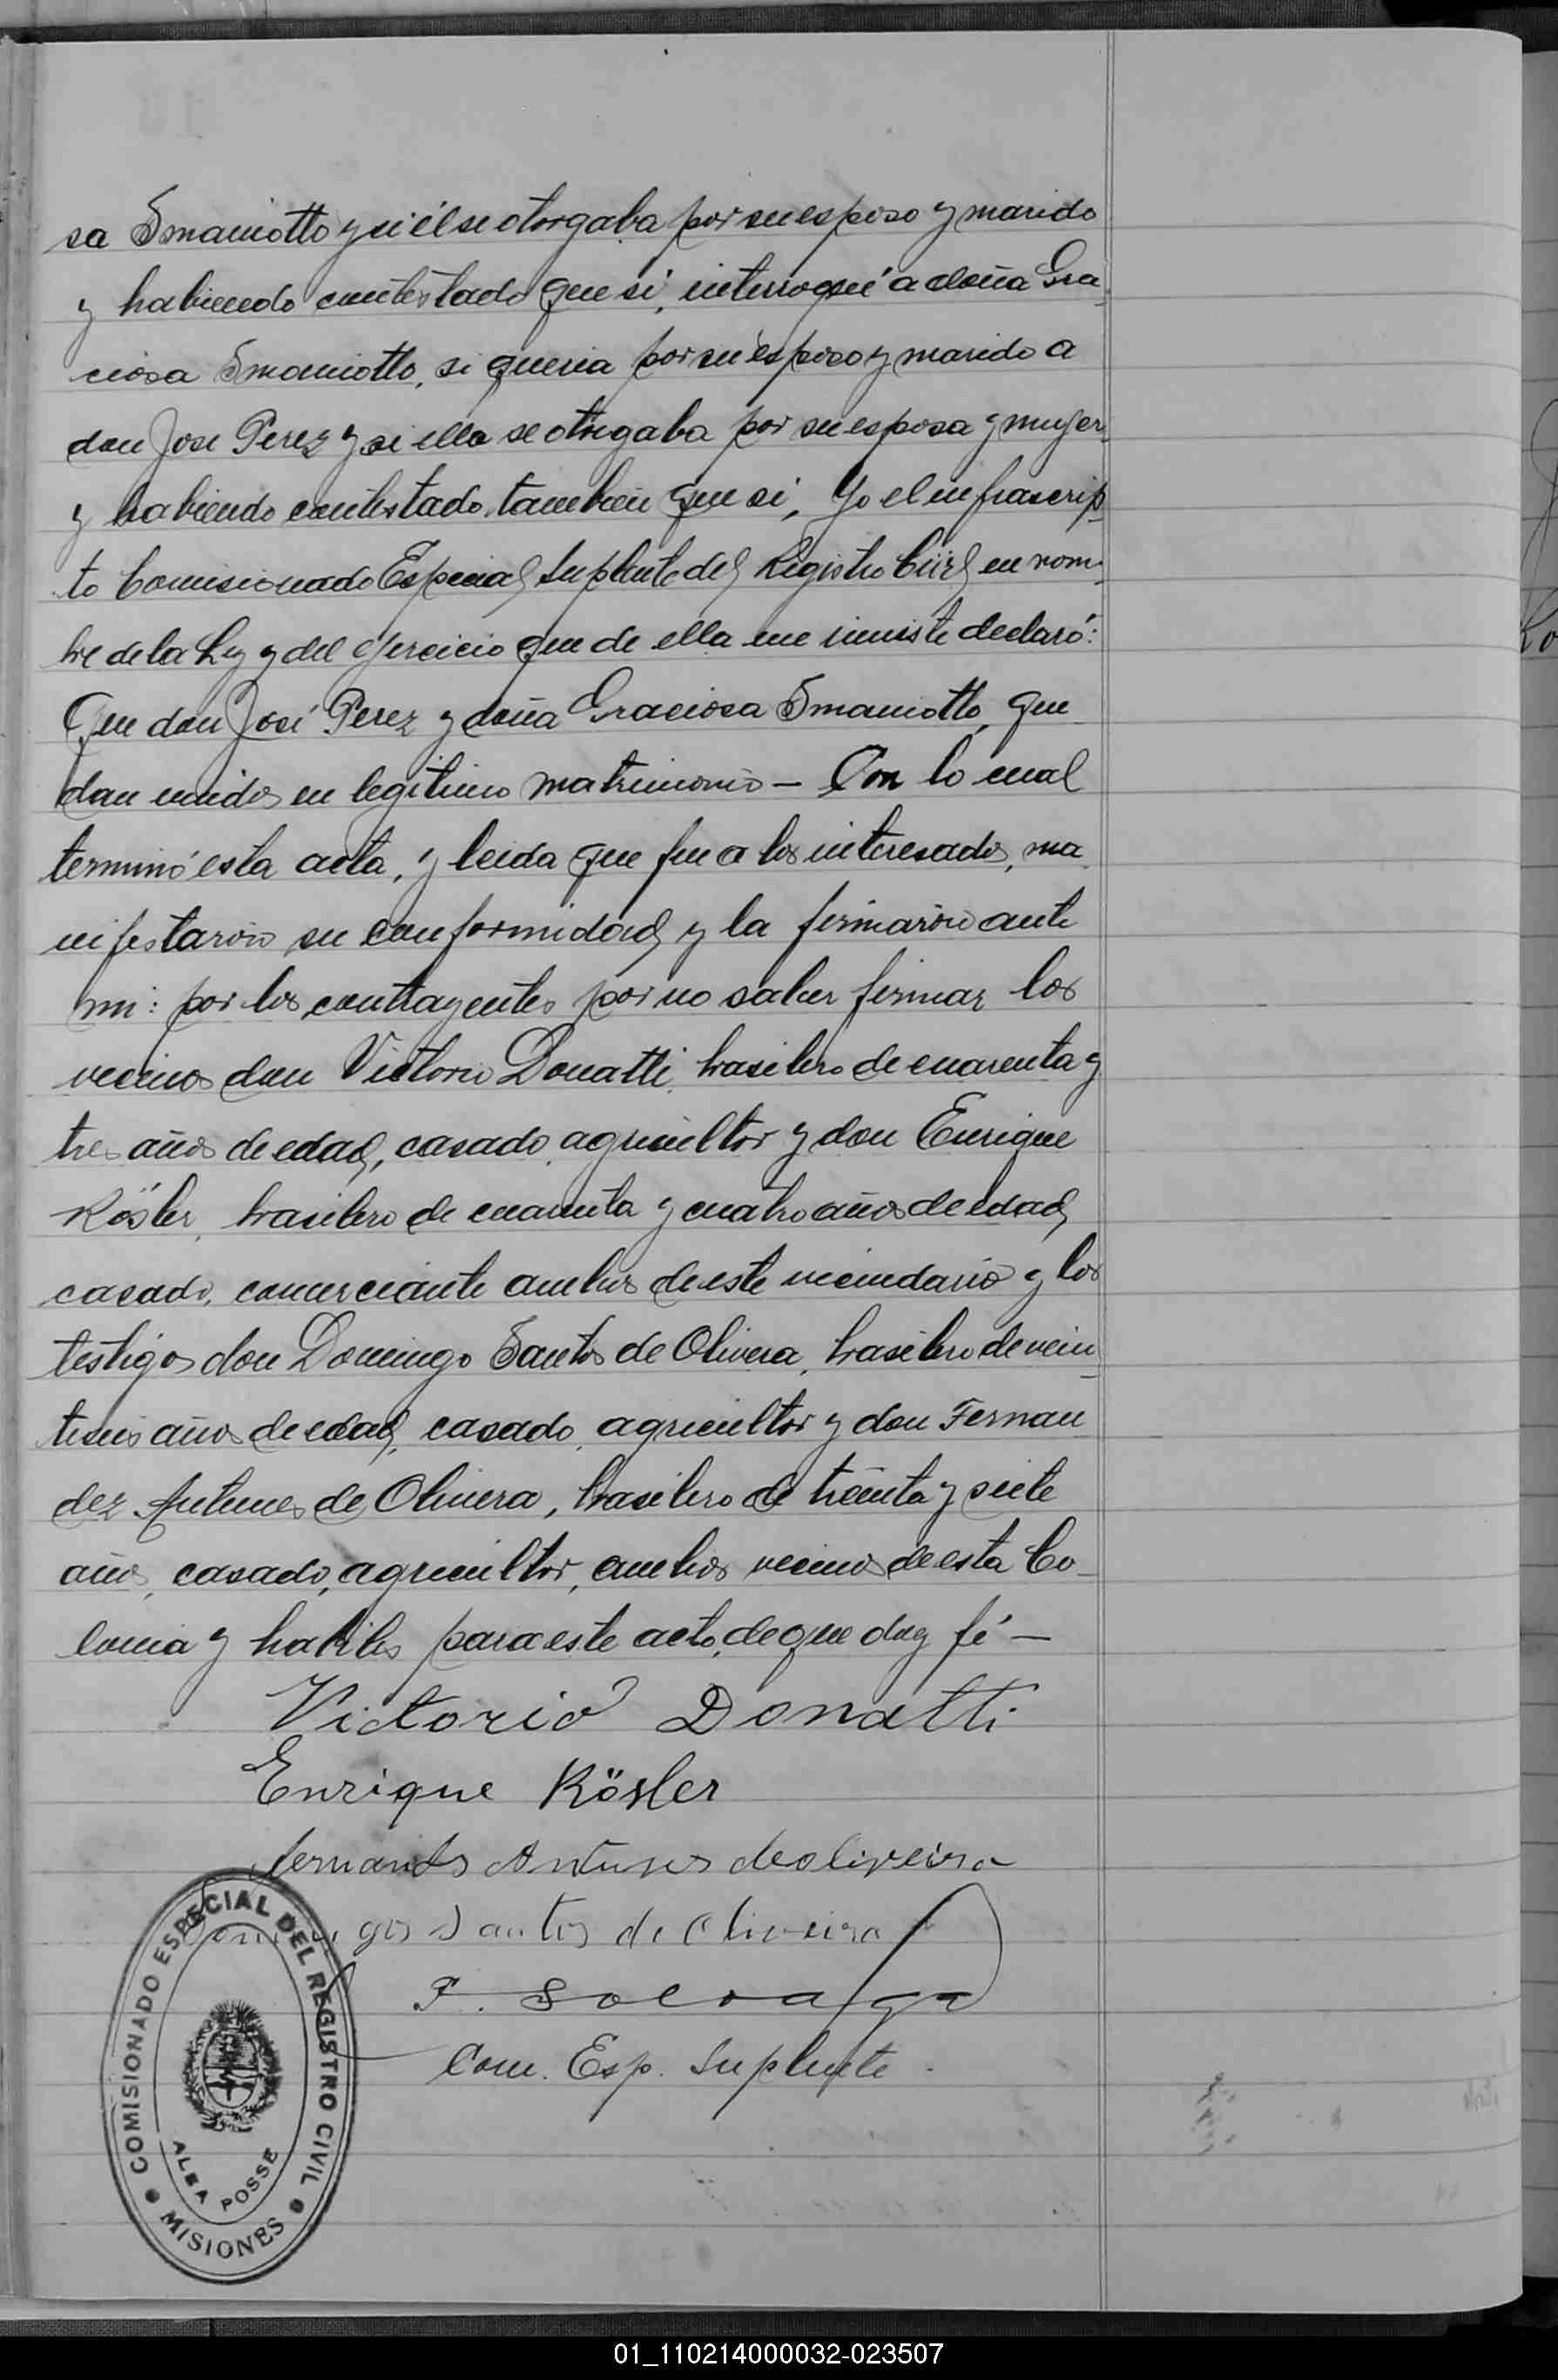 sa Smaniotto y si él se otorgaba por su esposo y marido
y habiendo contestado que si, interrogué a doña Gra
ciosa Smaniotto, si queria por su esposo y marido a
don Jose Perez y si ella se otorgaba por su esposa y mujer
y habiendo contestado tambien que si, Yo el infrascrip
to Comisionado Especial Suplente del Registro Civil en nom-
bre de la Ley y del ejercicio que de ella me inviste declaró:
Que don José Perez y doña Graciosa Smaniotto, que
dan unidos en legitimo matrimonio — Con lo cual
terminó esta acta, y leida que fue a los interesados, ma
nifestarón su conformidad y la firmarón ante
mi: por los contrayentes por no saber firmar los
vecinos don Victorio Donatti, brasilero de cuarenta y
tres años de edad, casado, agricultor y don Enrique
Kösler, brasilero de cuarenta y cuatro años de edad,
casado, comerciante ambos de este vecindario y los
testigos don Domingo Santos de Olivera, brasilero de vein
tiseis años de edad, casado, agricultor y don Fernan
dez Antunes de Olivera, brasilero de treinta y siete
años, casado, agricultor, ambos vecinos de esta Co-
lonia y habiles para este acto, de que doy fé —
Victorio Donatti
Enrique Kösler
fernands Antunes de oliveira
Domingos Santos de Oliveira
Com. Esp. Suplente.
COMISIONADO ESPECIAL DEL REGISTRO CIVIL
ALBA POSSE
MISIONES
01_110214000032-023507